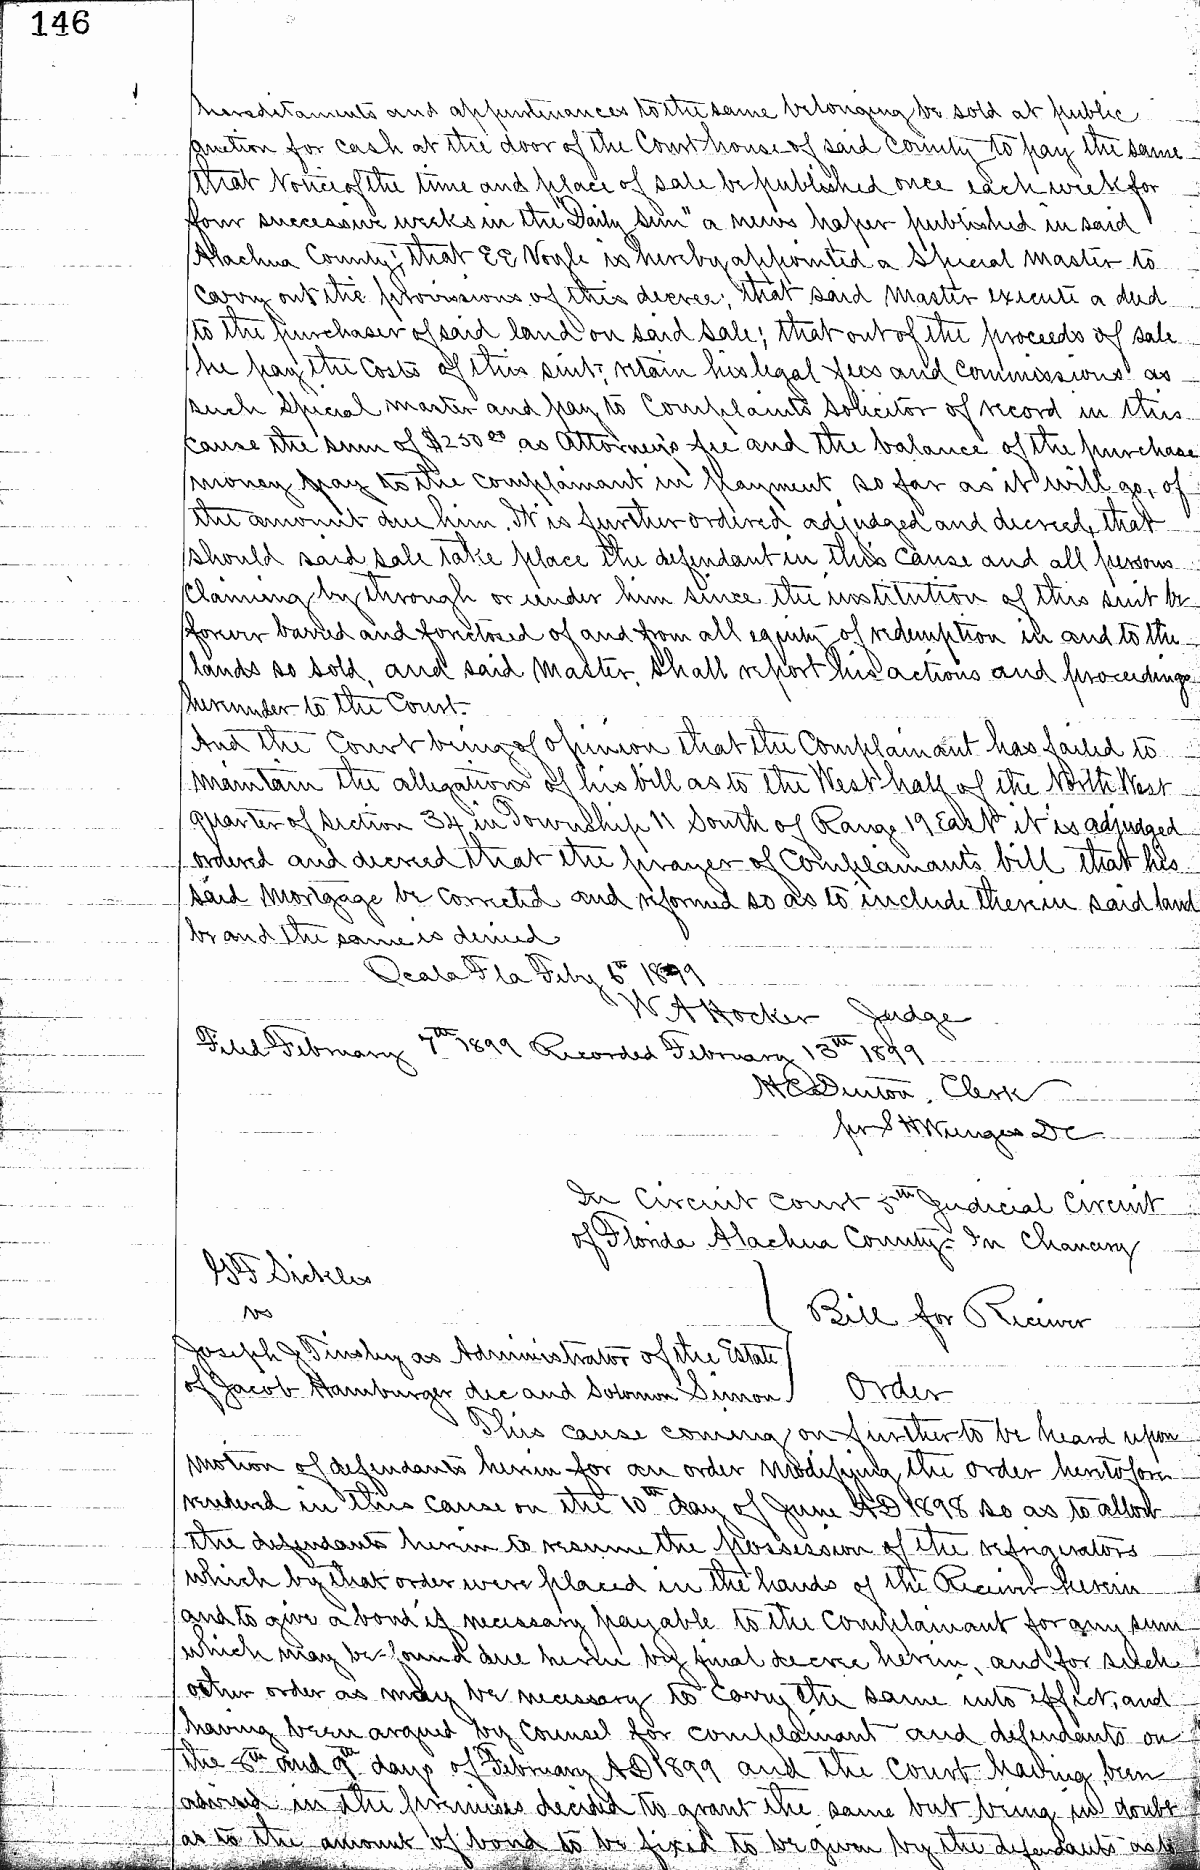 146
hereditaments and appurtenances to the same belonging be sold at public
auction for cash at the door of the Court house of said County to pay the same
that Notice of the time and place of sale be published once each week for
four successive weeks in the "Daily Sun" a news paper published in said
Alachua County; that E E Voyle is hereby appointed a Special Master to
carry out the provisions of this decree; that said Master execute a deed
to the purchaser of said land on said sale; that out of the proceeds of sale
he pay the Costs of this suit; retain his legal fees and Commissions as
such Special master and pay to Complaints Solicitor of record in this
cause the sum of $250 00 as Attorney's fee and the balance of the purchase
money pay to the complainant in payment so far as it will go, of
the amount due him. It is further ordered adjudged and decreed, that
should said sale take place the defendant in this cause and all persons
claiming by through or under him since the institution of this suit be
forever barred and foreclosed of and from all equity of redemption in and to the
lands so sold, and said Master, shall report his actions and proceedings
hereunder to the Court.
And the Court being of opinion that the Complainant has failed to
maintain the allegations of his bill as to the West half of the North West
quarter of Section 34 in Township 11 South of Range 19 East it is adjudged
ordered and decreed that the prayer of Complainants bill that his
said Mortgage be corrected and reformed so as to include therein said land
be and the same is denied
Ocala Fla Feby 6th 1899
W A Hocker Judge
Filed February 7th 1899 Recorded February 13th 1899
H C Denton, Clerk
per S H Wienges DC
In Circuit Court 5th Judicial Circuit
of Florida Alachua County - In Chancery
G F Sickles
vs
Bill for Receiver
Joseph J Tinsley as Administrator of the Estate
of Jacob Hamburger dec and Solomon Simon
Order
This cause coming on further to be heard upon
motion of defendants herein for an order modifying the order heretofore
rendered in this cause on the 10th day of June AD 1898 so as to allow
the defendants herein to resume the possession of the refrigerators
which by that order were placed in the hands of the Receiver herein
and to give a bond if necessary payable to the Complainant for any sum
which may be found due herein by final decree herein, and for such
other order as may be necessary to carry the same into effect, and
having been argued by Counsel for complainant and defendants on
the 8th and 9th days of February AD 1899 and the Court having been
advised in the premises decided to grant the same but being in doubt
as to the amount of bond to be fixed to be given by the defendants as to